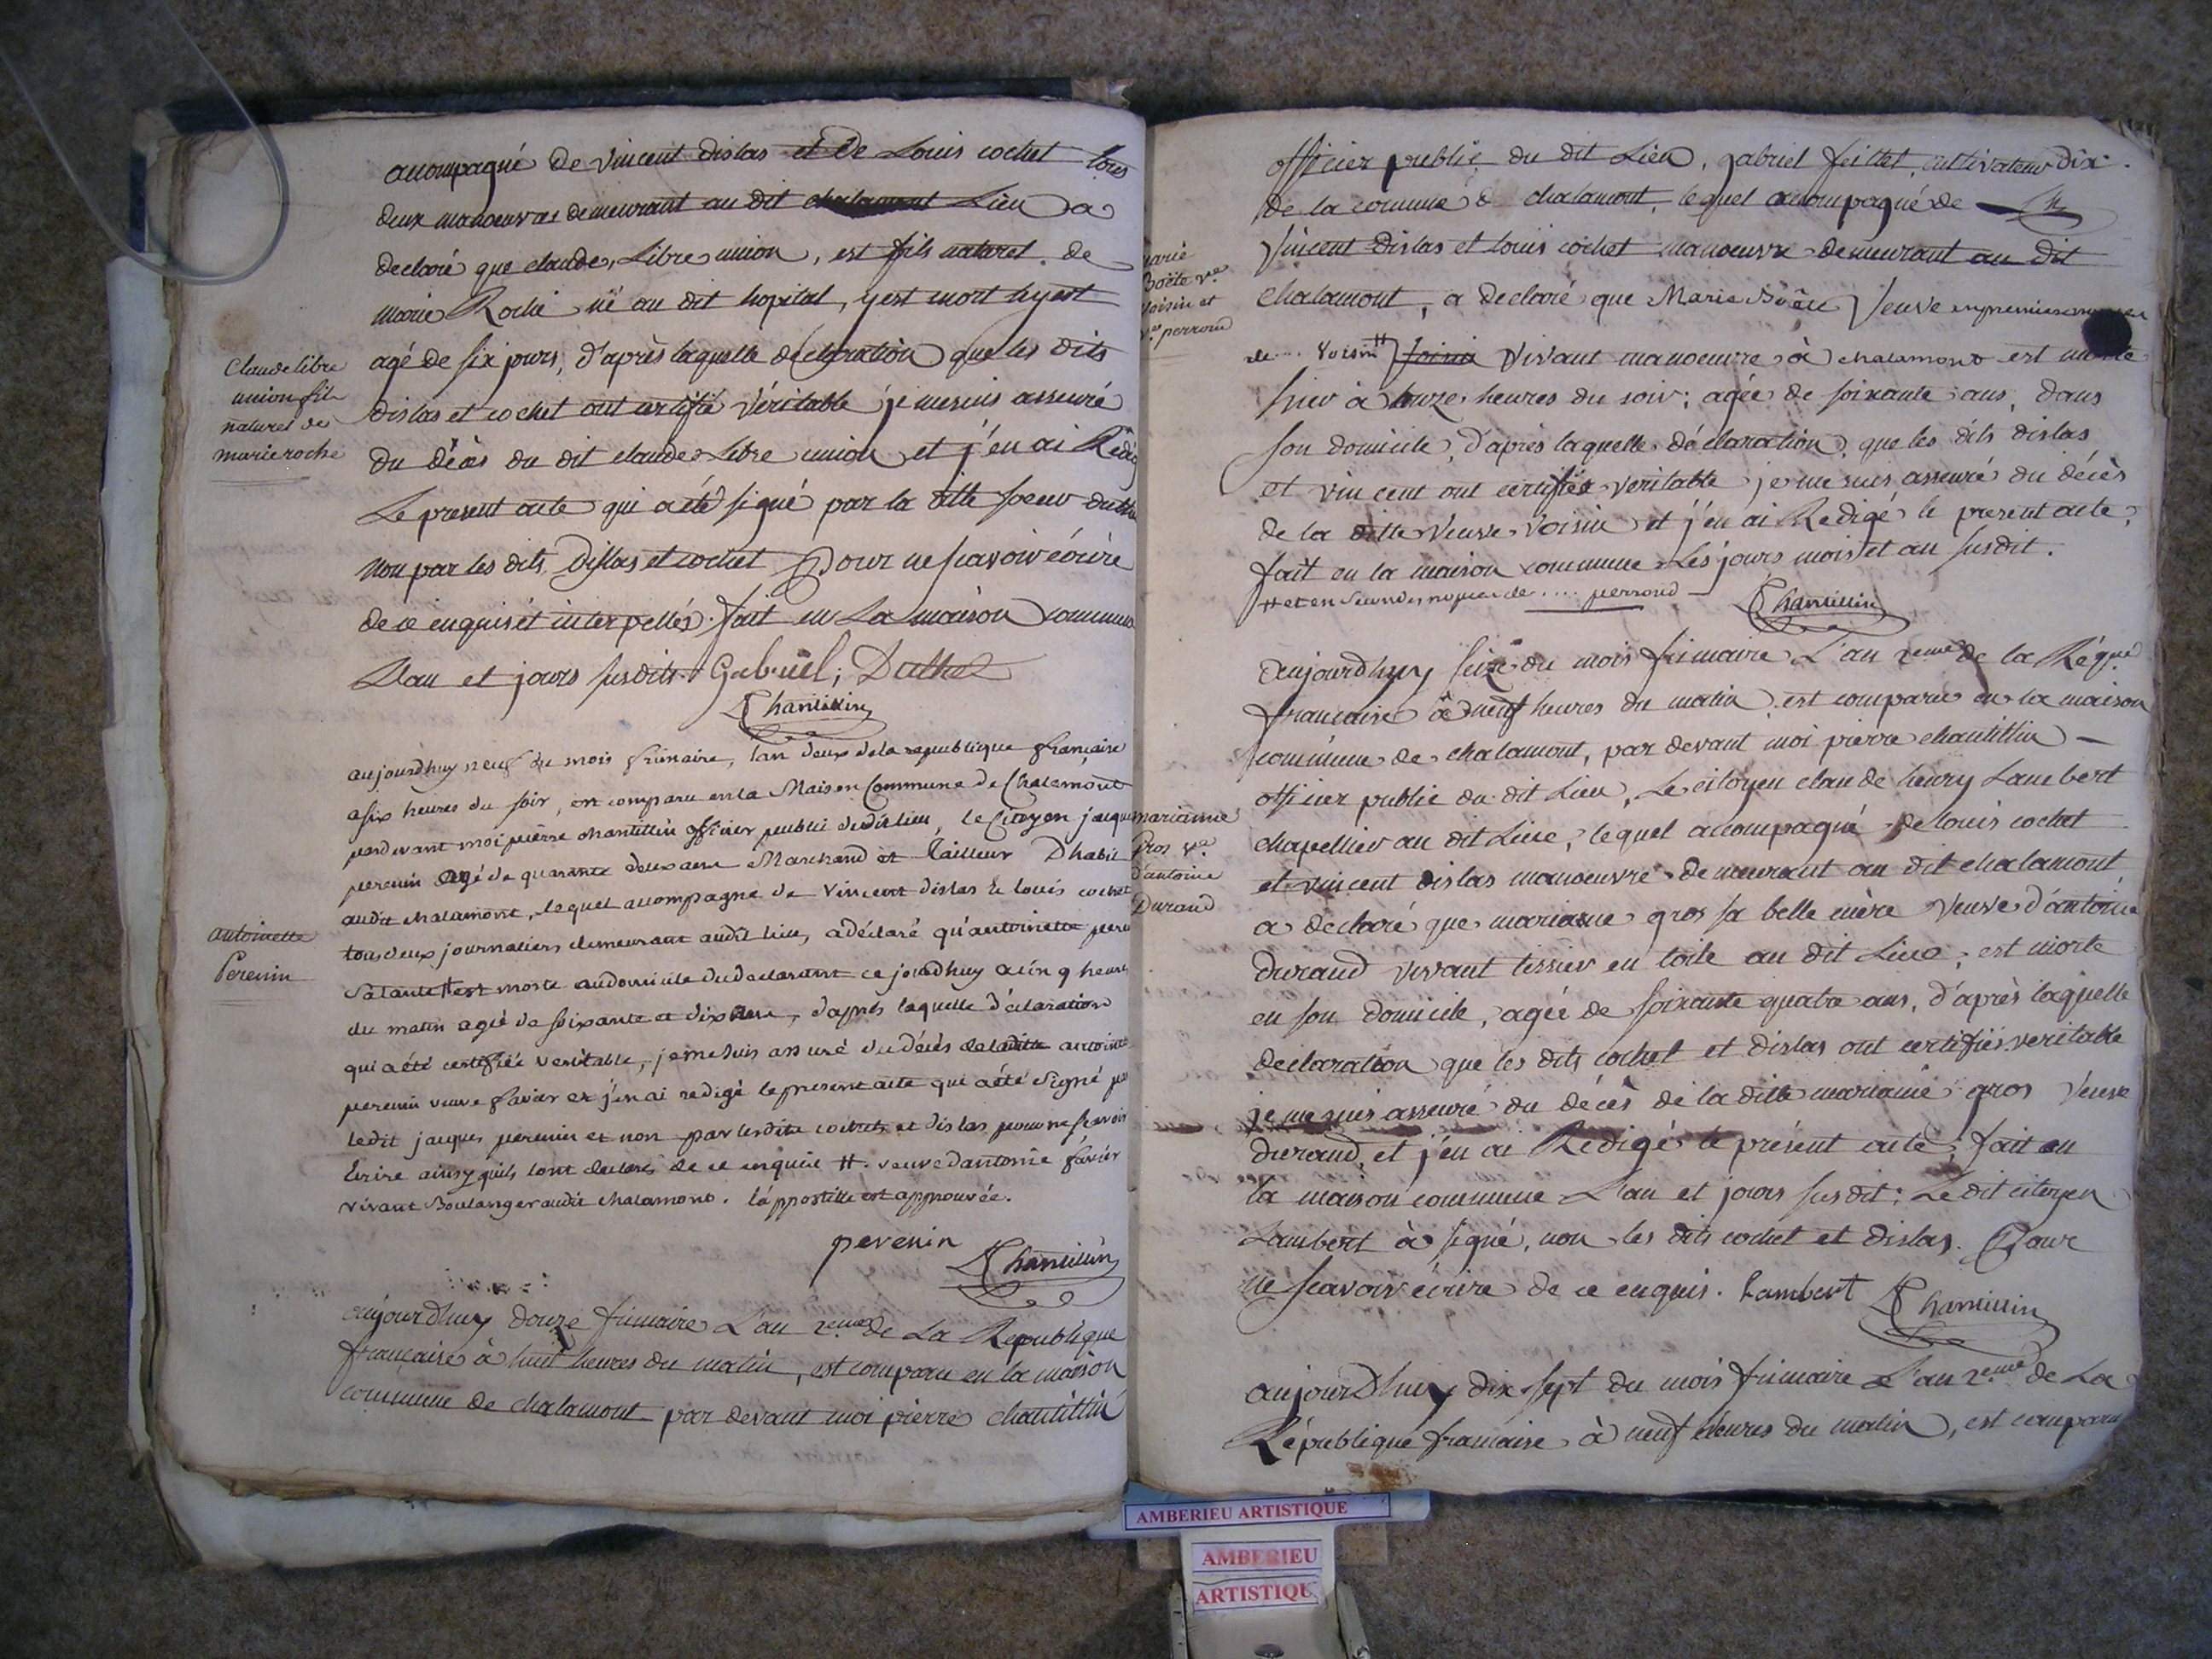 acompagné de vincent dislas et de Louis cochet tous
deux manoeuvres demeurant au dit chalamont Lieu a
declaré que claude, Libre union, est fils naturel de
marie Roche né au dit hopital, y est mort hyest
agé de six jours, d'après laquelle déclaration que les dits
dislas et cochet ont certifié véritable je me suis asseuré
du décès du dit claude Libre union et j'en ai Rédigé
Le present acte qui a été signé par la ditte soeur
non par les dits dislas et cochet Pour ne scavoir écrire
de ce enquis et interpellés. fait en La maison commune
L'an et jours susdits. Gabriel, Duthel
Chantillin
Claude libre
union fils
naturel de
marie roche
aujourdhuy neuf du mois frimaire, lan deux dela republique française
a six heures du soir, est comparu en la Maison Commune de Chalamont
pardevant moi pierre chantillin officier public dudit lieu, le Citoyen jaques
perenin agé de quarante deux ans Marchand et Tailleur Dhabit
audit chalamont, lequel accompagné de Vincent dislas & louis cochet
tous deux journaliers demeurant audit lieu, a déclaré qu'antoinette
Sa tante # est morte au domicile du declarant ce jourdhuy a cinq heures
du matin agée de soixante et dix ans, d'après laquelle déclaration
qui a été certifiée veritable, je me suis assuré du décès de laditte antoinette
perenin veuve favier et j'en ai redigé le present acte qui a été signé par
ledit jaques perenin et non par lesdits cochet et dislas pour ne scavoir
Ecrire ainsy quils l'ont declaré de ce enquis #. veuve dantoine favier
vivant Boulanger audit chalamont. l'appostille est approuvée.
perenin Chantillin
antoinette
Perenin
aujourdhuy douze frimaire L'an 2eme de La Republique
française à huit heures du matin, est comparu en la maison
commune de chalamont par devant moi pierre chantillin
officier public du dit Lieu, gabriel feillet, cultivateur
de la comune de chalamont, lequel accompagné de
Vincent dislas et louis cochet manoeuvre demeurant au dit
chalamont, a declaré que Marie Veuve en premieres
de ... Voisin # Voisin vivant manoeuvre à chalamont est morte
hier à onze heures du soir, agée de soixante ans, dans
son domicile, d'après laquelle déclaration que les dits dislas
et vincent ont certifiée veritable je me suis asseuré du décès
de la ditte Veuve Voisin et j'en ai Redigé le present acte,
fait en la maison commune Les jours mois et an susdit.
# et en secondes nopces de .... perroud Chantillin
marie
Boëte ve
Voisin et
perroud
aujourdhuy seize du mois frimaire L'an 2eme de la Réque
francaise à neuf heures du matin, est comparu en la maison
commune de chalamont, par devant moi pierre chantillin
officier public du dit Lieu, Le citoyen claude henry Lambert
chapellier au dit Lieu, lequel accompagné de louis cochet
et vincent dislas manoeuvre demeurant au dit chalamont
a declaré que marianne gros sa belle mère Veuve d'antoine
durand vivant tissier en toile au dit Lieu, est morte
en son domicile, agée de soixante quatre ans, d'après laquelle
declaration que les dits cochet et dislas ont certifiés veritable
je me suis asseuré du décès de la ditte marianne gros Veuve
durand, et j'en ai Redigé le présent acte, fait en
la maison commune L'an et jours susdit; Le dit citoyen
Lambert à signé, non les dits cochet et dislas. Pour
ne scavoir écrire de ce enquis. Lambert Chantillin
marianne
Gros ve
d'antoine
Durand
aujourdhuy dix sept du mois frimaire L'an 2eme de La
République francaise à neuf heures du matin, est comparu
AMBERIEU ARTISTIQUE
AMBERIEU
ARTISTIQU